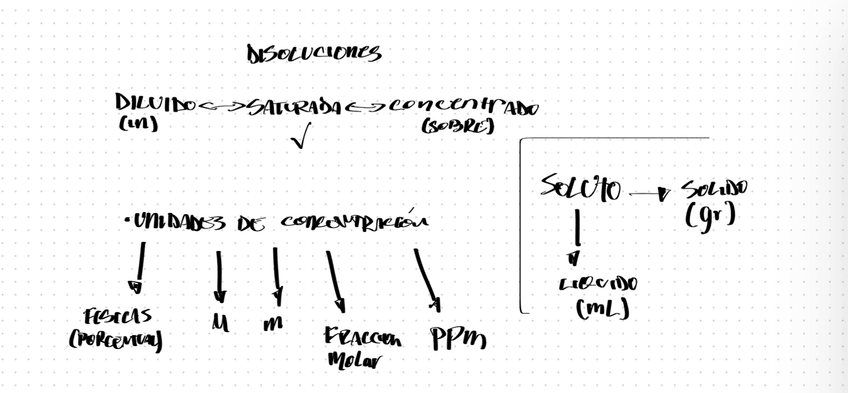 DISOLUCIONES
DILUIDO <--> SATURADA <--> concentrADO
(in) ✓ (SOBRE)
SOLUTO → SOLIDO
(gr)
LIQUIDO
(mL)
• UNIDADES DE CONCENTRACIÓN
FISICAS
(PORCENTUAL)
M
m
FRACCION
MOLAR
PPm